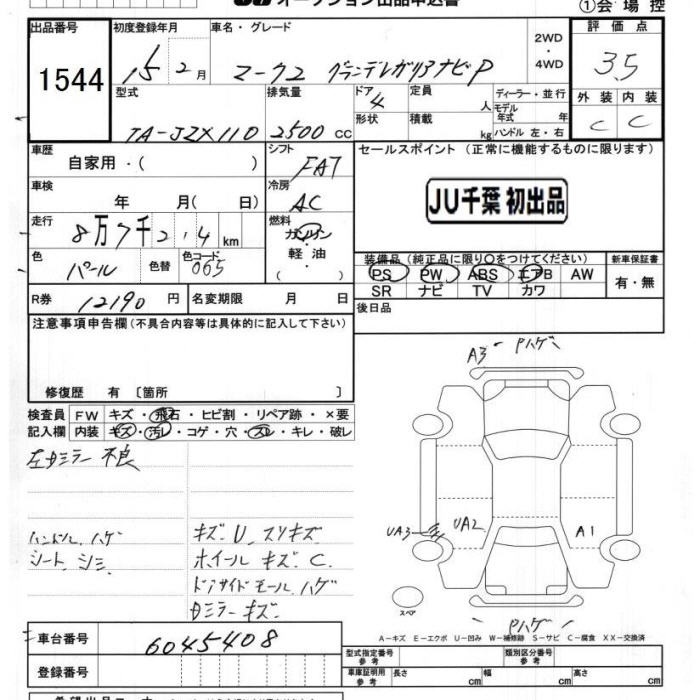 オークション出品申込書
①会場控
出品番号 初度登録年月 車名・グレード 2WD ・ 4WD 評価点
1544 15 2月 マークⅡ グランデレガリアナビP 3.5
型式 排気量 ドア 4 定員 人 ディーラー・並行 外装 内装
モデル年式 年
TA-JZX110 2500cc 形状 積載 kg ハンドル 左・右 C C
車歴 シフト セールスポイント (正常に機能するものに限ります)
自家用・( ) FAT
車検 冷房 JU千葉 初出品
年 月( 日) AC
走行 燃料
8万7千2,4km ガソリン・軽油
色 色替 色コード 装備品 (純正品に限り○をつけてください) 新車保証書
パール 065 PS PW ABS エアB AW 有・無
SR ナビ TV カワ
R券 12190円 名変期限 月 日 後日品
注意事項申告欄 (不具合内容等は具体的に記入して下さい)
A3 Pハゲ
修復歴 有 〔箇所 〕
検査員 FW キズ・飛石・ヒビ割・リペア跡・×要
記入欄 内装 キズ・汚レ・コゲ・穴・スレ・キレ・破レ
左Dミラー 不良
UA3 UA2 A1
ハンドル ハゲ キズ、U、スリキズ
シート シミ ホイール キズ C.
ドアサイドモール ハゲ
Dミラー キズ
スペア
Pハゲ
A-キズ E-エクボ U-凹み W-補修跡 S-サビ C-腐食 XX-交換済
車台番号 6045408
型式指定番号 参考 類別区分番号 参考
登録番号 車庫証明用 参考 長さ 幅 高さ cm